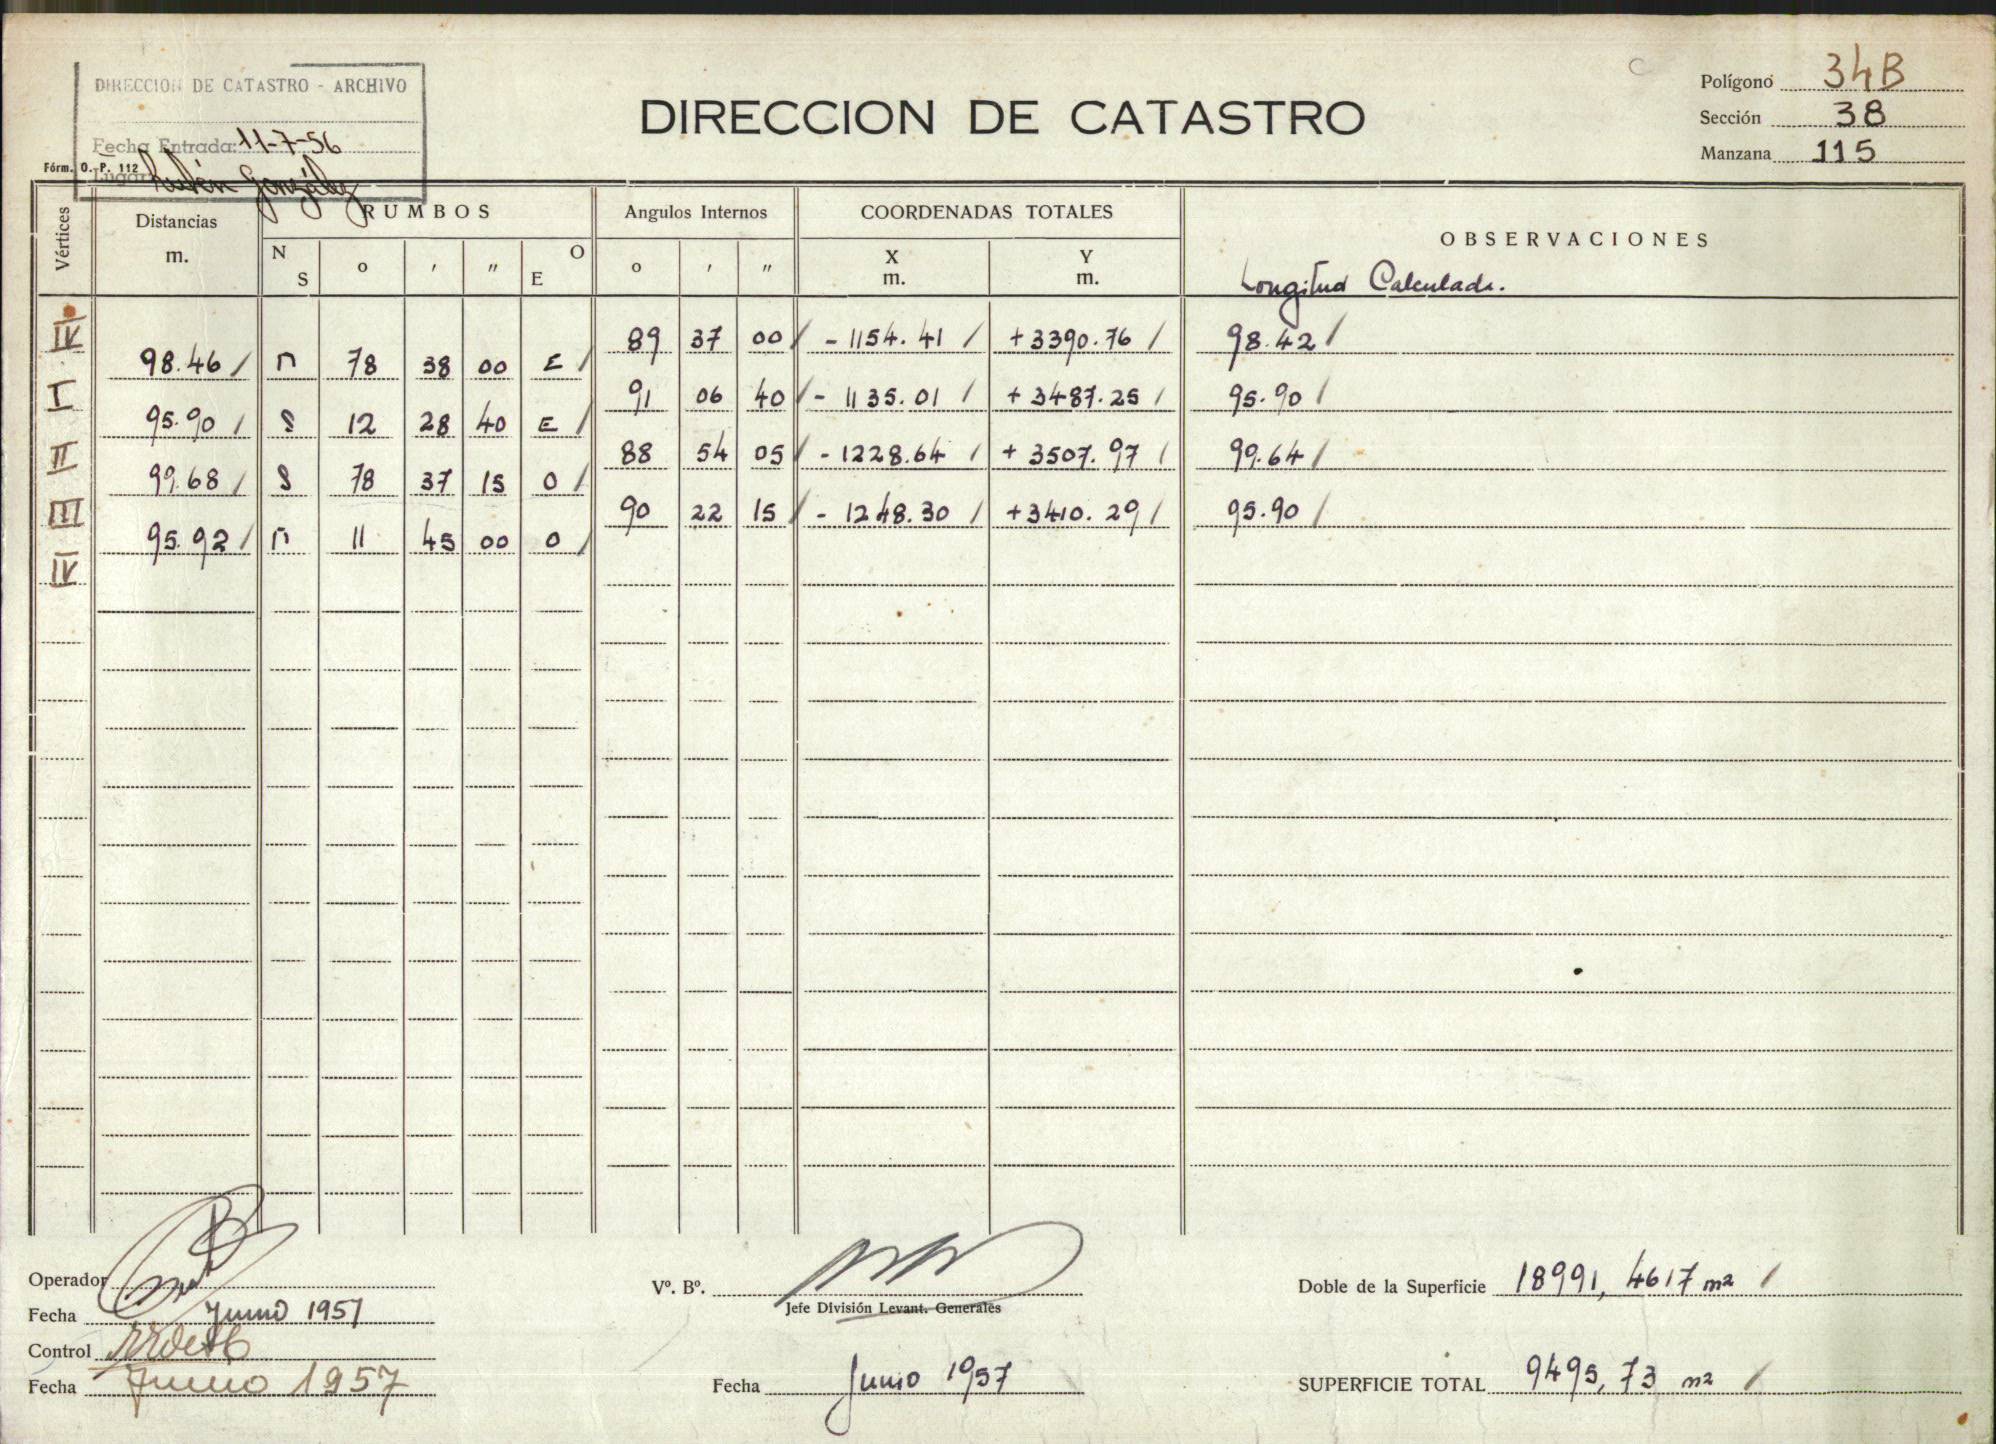 DIRECCION DE CATASTRO - ARCHIVO
Fecha Entrada: 11-7-56
Lugar Rubén González
Fórm. O. P. 112
DIRECCION DE CATASTRO
Polígono 34B
Sección 38
Manzana 115
Vértices Distancias m. RUMBOS N S o ' " O E Angulos Internos o ' " COORDENADAS TOTALES X m. Y m. OBSERVACIONES
Longitud Calculada.
IV 89 37 00 / - 1154.41 / +3390.76 / 98.42 /
98.46 / N 78 38 00 E /
I 91 06 40 / - 1135.01 / +3487.25 / 95.90 /
95.90 / S 12 28 40 E /
II 88 54 05 / - 1228.64 / + 3507.97 / 99.64 /
99.68 / S 78 37 15 O /
III 90 22 15 / - 1248.30 / +3410.29 / 95.90 /
95.92 / N 11 45 00 O /
IV
Operador
Fecha Junio 1957
Control
Fecha Junio 1957
Vº. Bº.
Jefe División Levant. Generales
Fecha Junio 1957
Doble de la Superficie 18991,4617 m2 /
SUPERFICIE TOTAL 9495,73 m2 /